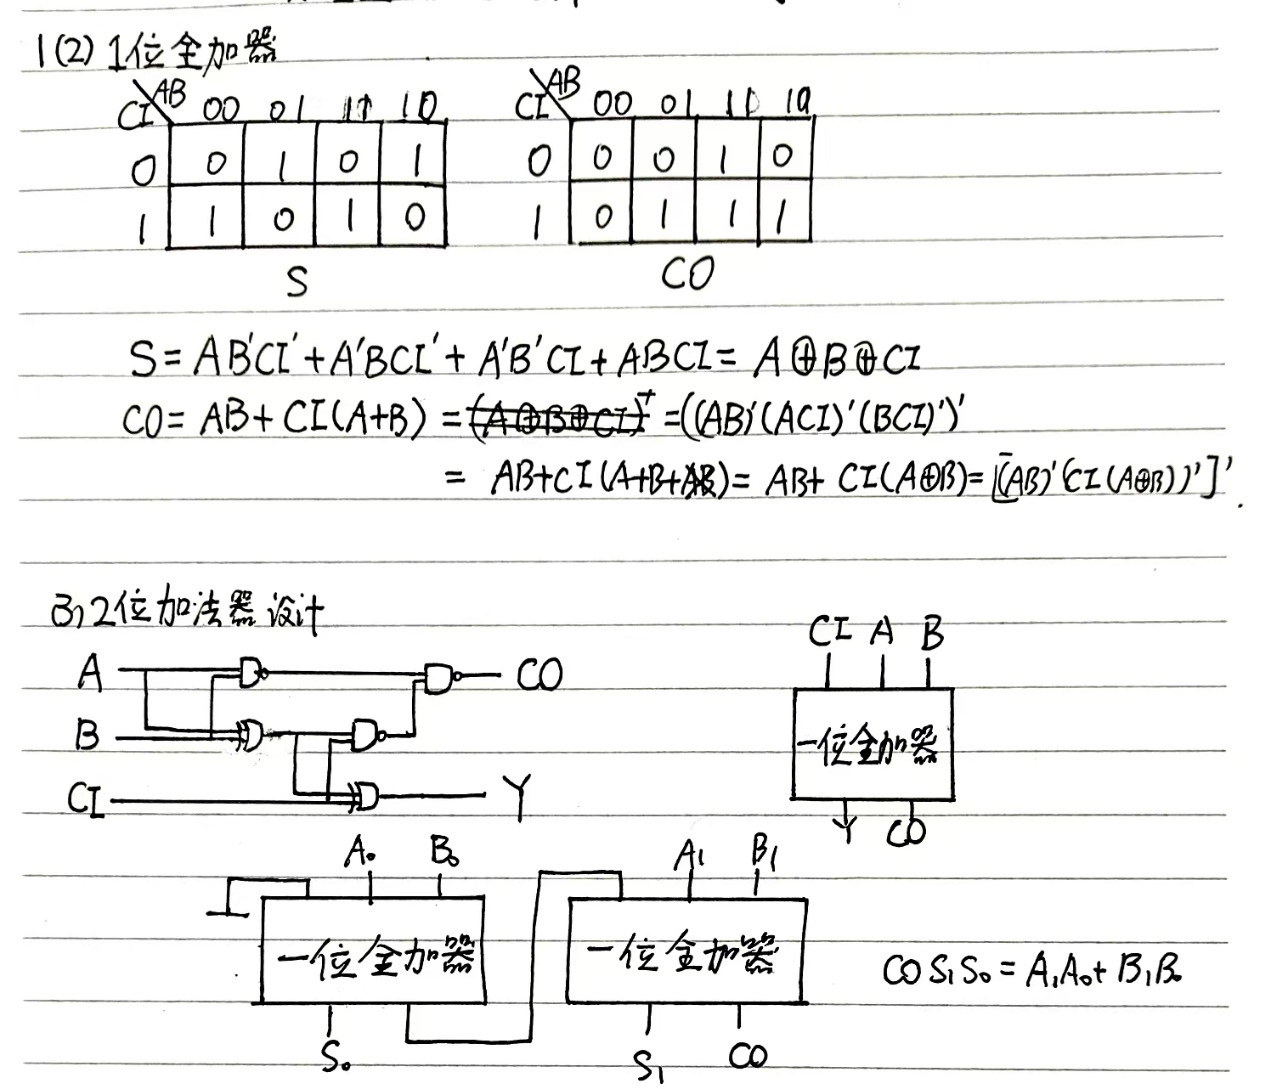 1(2) 1位全加器
CI\AB 00 01 11 10
0 0 1 0 1
1 1 0 1 0
S
CI\AB 00 01 11 10
0 0 0 1 0
1 0 1 1 1
CO
S = AB'CI' + A'BCI' + A'B'CI + ABCI = A⊕B⊕CI
CO = AB + CI(A+B) = (A⊕B⊕CI)' = ((AB)'(ACI)'(BCI)')'
= AB+CI(A+B+AB) = AB+ CI(A⊕B) = [(AB)'(CI(A⊕B))']'.
(3) 2位加法器设计
A
B
CI
CO
Y
CI A B
一位全加器
Y CO
A₀ B₀
一位全加器
S₀
A₁ B₁
一位全加器
S₁ CO
CO S₁S₀ = A₁A₀ + B₁B₀